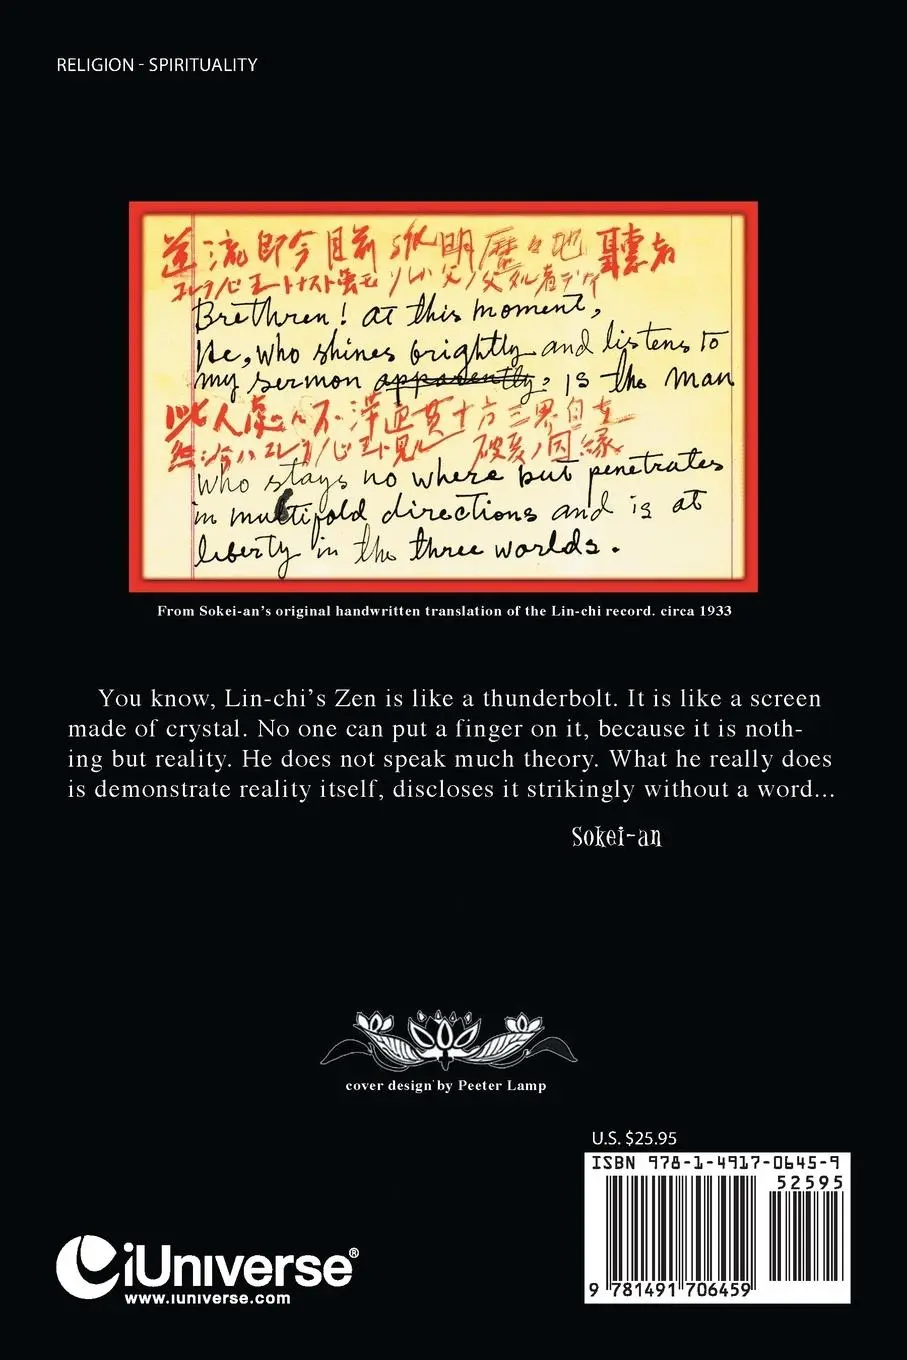 RELIGION - SPIRITUALITY
道流即今目前孤明歴々地聽者
Brethren! at this moment,
He, who shines brightly and listens to
my sermon apparently, is the man
此人處々不滯通貫十方三界自在
who stays no where but penetrates
in multifold directions and is at
liberty in the three worlds.
From Sokei-an's original handwritten translation of the Lin-chi record. circa 1933
You know, Lin-chi's Zen is like a thunderbolt. It is like a screen
made of crystal. No one can put a finger on it, because it is noth-
ing but reality. He does not speak much theory. What he really does
is demonstrate reality itself, discloses it strikingly without a word...
Sokei-an
cover design by Peeter Lamp
U.S. $25.95
ISBN 978-1-4917-0645-9
52595
9 781491 706459
iUniverse®
www.iuniverse.com